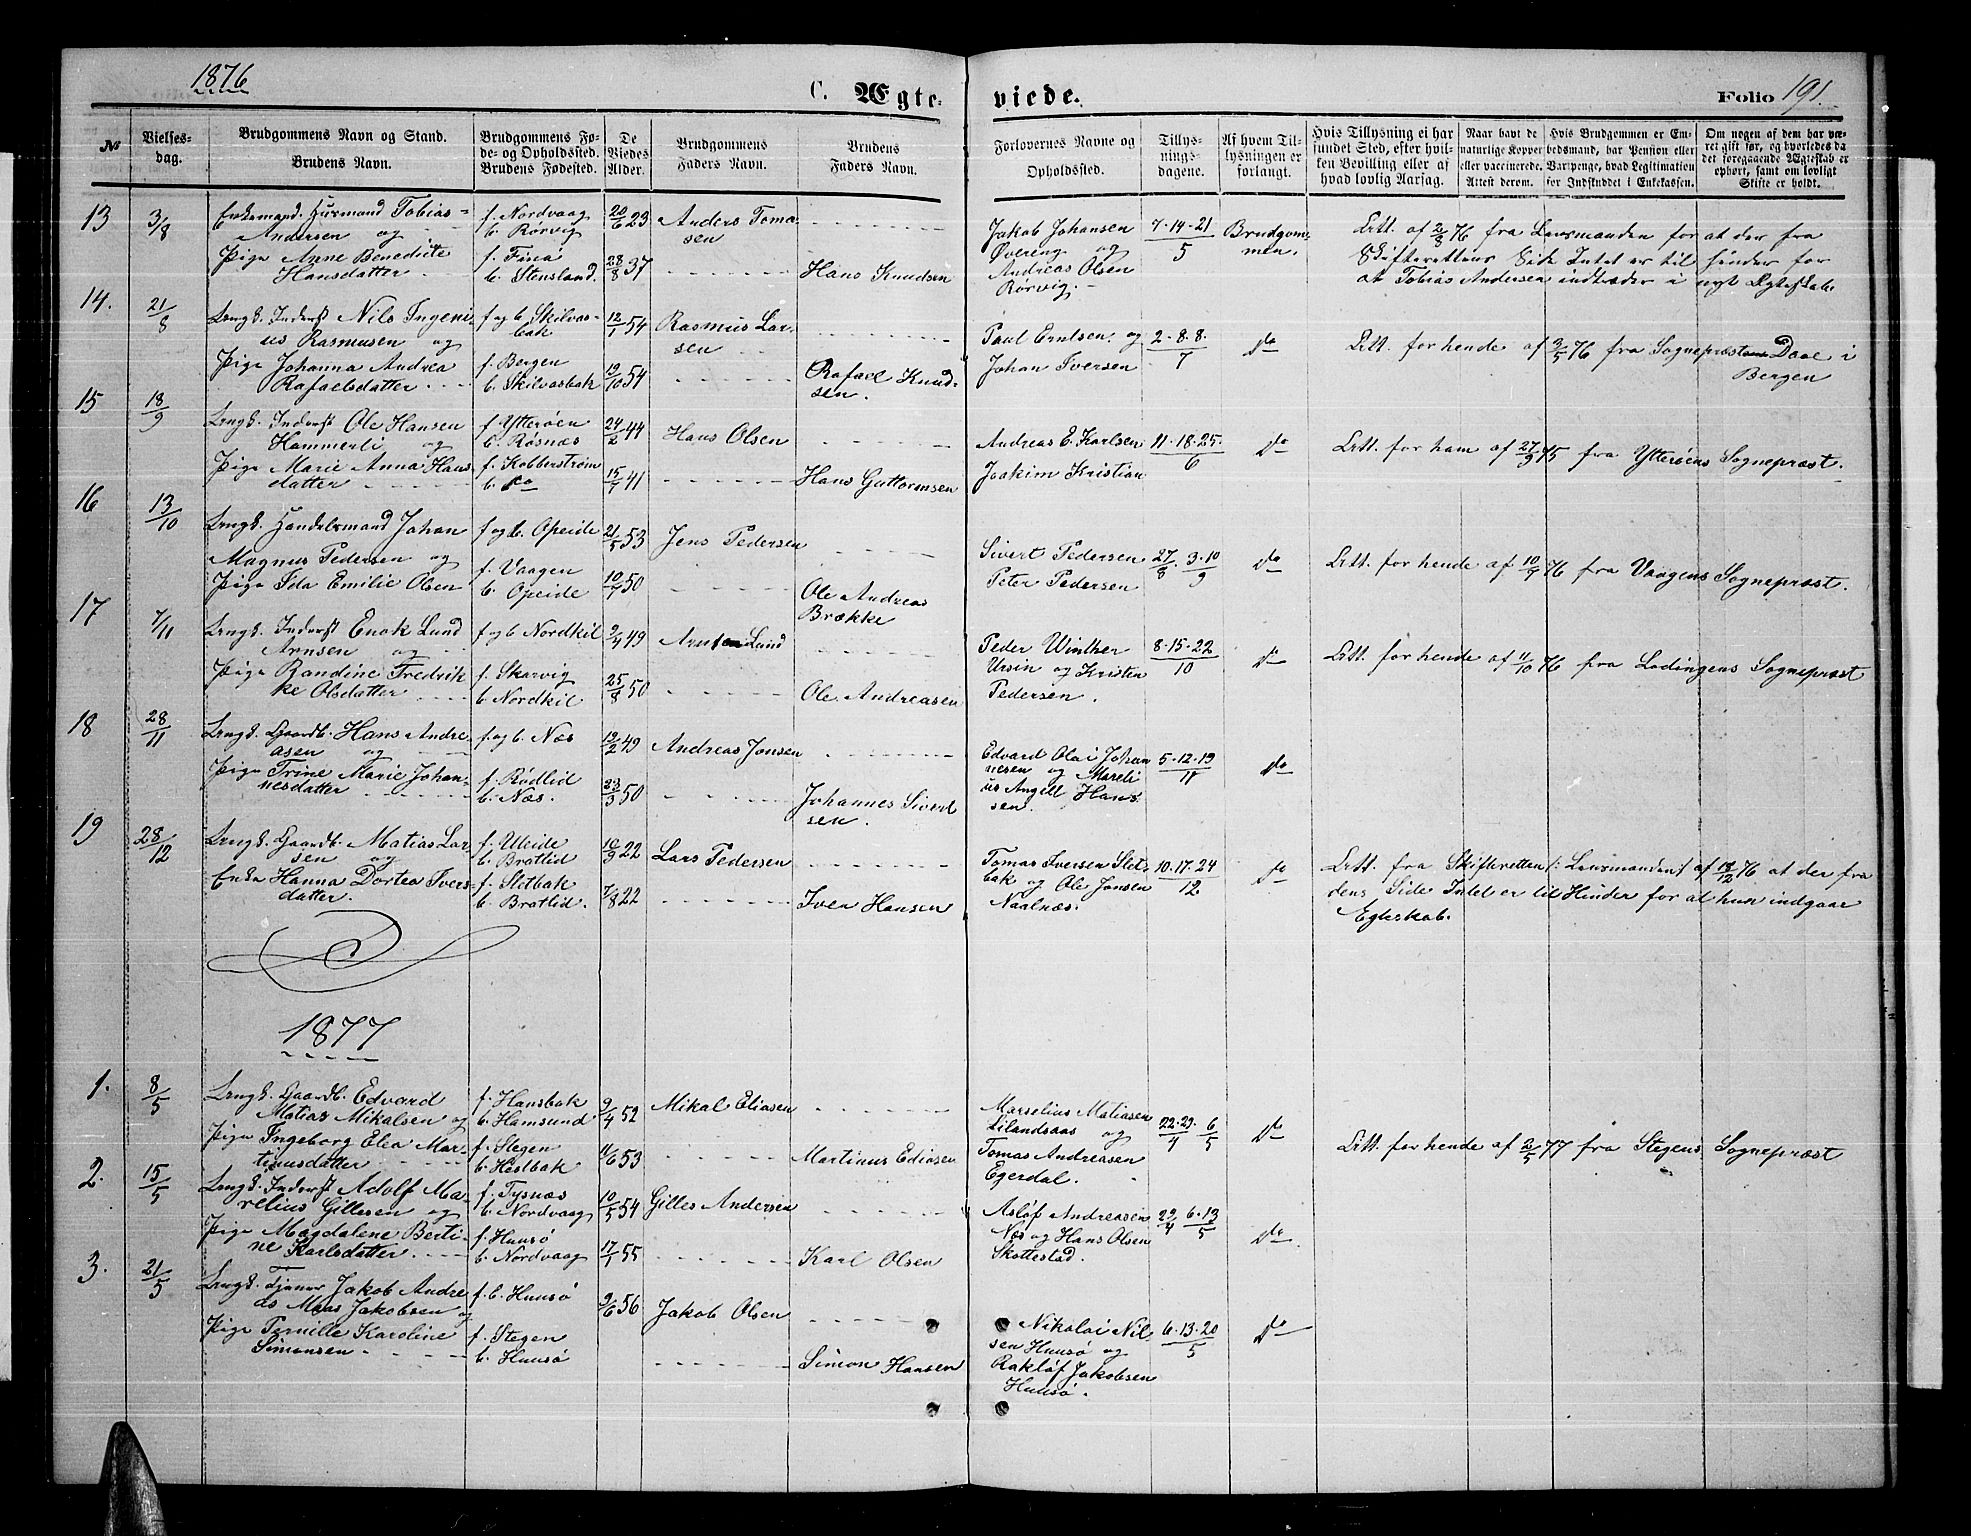 1876
C. Ægte-
viede.
Folio 191.
№
Vielses-
dag.
Brudgommens Navn og Stand.
Brudens Navn.
Brudgommens Fø-
de- og Opholdssted.
Brudens Fødested.
De
Viedes
Alder.
Brudgommens
Faders Navn.
Brudens
Faders Navn.
Forlovernes Navne og
Opholdssted.
Tillys-
nings-
dagene.
Af hvem Til-
lysningen er
forlangt.
Hvis Tillysning ei har
fundet Sted, efter hvil-
ken Bevilling eller af
hvad lovlig Aarsag.
Naar havt de
naturlige Kopper
eller vaccinerede.
Attest derom.
Hvis Brudgommen er Em-
bedsmand, har Pension eller
Vartpenge, hvad Legitimation
for Indskuddet i Enkekassen.
Om nogen af dem har væ-
ret gift før, og hvorledes da
det foregaaende Ægteskab er
ophørt, samt om lovligt
Skifte er holdt.
13
3/8
Enkemand. Husmand Tobias
Andersen og
Pige Anne Benedicte
Hansdatter
f. Nordvaag
b. Rørvig
f.
b. Stensland.
20/6 23
28/8 37
Anders Toma-
sen
Hans Knudsen
Jakob Johansen
Øvereng og
Andreas Olsen
Rørvig.
7·14·21
5
Brudgom-
men.
Att. af 2/8 76 fra Lensmanden for at der fra
Skifterettens Side Intet er til Hinder for
at Tobias Andersen indtræder i nyt Ægteskab.
14.
21/8
Ungk. Inderst Nils Ingeni-
us Rasmusen og
Pige Johanna Andrea
Rafaelsdatter
f og b. Skilvas-
bak
f. Bergen
b. Skilvasbak
12/7 54
19/10 54
Rasmus Lar-
sen
Rafael Knud-
sen.
Paul Erntsen og
Johan Iversen
2·8·8.
7
do
Att. for hende af 3/5 76 fra Sognepræst Daae i
Bergen
15
18/9
Ungk. Inderst Ole Hansen
Hammerli og
Pige Marie Anna Hans
datter
f. Ytterøen
b. Røsnæs
f. Kobberstrøm
b. do
24/2 44
15/7 41
Hans Olsen
Hans Guttormsen
Andreas E. Karlsen
Joakim Kristian
11·18·25.
6
do
Att. for ham af 27/9 75 fra Ytterøens Sognepræst.
16
13/10
Ungk. Handelsmand Johan
Magnus Pedersen og
Pige Ida Emilie Olsen
f og b. Opeide
f. Vaagen
b. Opeide
21/5 53
10/7 50
Jens Pedersen
Ole Andreas
Brække
Sivert Pedersen
Peter Pedersen
27/8 · 3·10/9
do
Att. for hende af 10/9 76 fra Vaagens Sognepræst.
17
7/11
Ungk. Inderst Enok Lund
Arnsen og
Pige Bandine Fredrik
ke Olsdatter
f og b Nordkil
f. Skarvig
b. Nordkil
9/4 49
25/8 50
Lund
Ole Andreasen
Peder Winther
Ursin og Kristen
Pedersen.
8·15·22
10
do
Att. for hende af 11/10 76 fra Lødingens Sognepræst
18
28/11
Ungk. Gaardb. Hans Andre-
asen og
Pige Trine Marie Johan-
nesdatter
f. og b. Næs
f. Rødlid
b. Næs.
19/2 49
23/3 50
Andreas Jonsen
Johannes Sivert
sen.
Edvard Olai Johan
nesen og Mareli
us Angell Hans
sen.
5·12·19
11
do
19
28/12
Ungk. Gaardb. Matias Lar-
sen og
Enke Hanna Dortea Ivers-
datter.
f. Uleide
b. Brotlid
f. Sletbak
b. Bratlid.
16/9 22
7/8 22
Lars Pedersen
Iver Hansen
Tomas Iversen Slet-
bak og Ole Jonsen
Naalnæs.
10·17·24
12
do
Att. fra Skifteretten /: Lensmanden / af 17/12 76 at der fra
dens Side Intet er til Hinder for at hun indgaar
Egteskab.
1877
1.
8/5
Ungk. Gaardb. Edvard
Matias Mikalsen og
Pige Ingeborg Elea Mar-
tinusdatter
f. Hansbak
b. Hamsund
f. Stegen
b. Hestbak
9/4 52
11/6 53
Mikal Eliasen
Martinus Ediasen
Marselius Matiasen
Lilandsaas og
Tomas Andreasen
Egerdal.
22·29/4 · 6/5
do
Att. for hende af 2/5 77 fra Stegens Sognepræst
2.
15/5
Ungk. Inderst Adolf Ma-
relius Gillesen og
Pige Magdalene Berti-
ne Karlsdatter
f. Tysnæs
b. Nordvaag
f. Hunsø
b. Nordvaag
10/5 54
17/1 55
Gilles Andersen
Karl Olsen
Asløf Andreasen
Næs og Hans Olsen
Skottestad.
29/4 · 6·13/5
do
3.
21/5
Ungk. Tjener Jakob Andre-
as Maas Jakobsen og
Pige Pernille Karoline
Simonsen
f. b. Hunsø
f. Stegen
b. Hunsø
9/6 56
Jakob Olsen
Simon Hansen
Nikolai Nil-
sen Hunsø og
Rakløf Jakobsen
Hunsø.
6·13·20
5
do